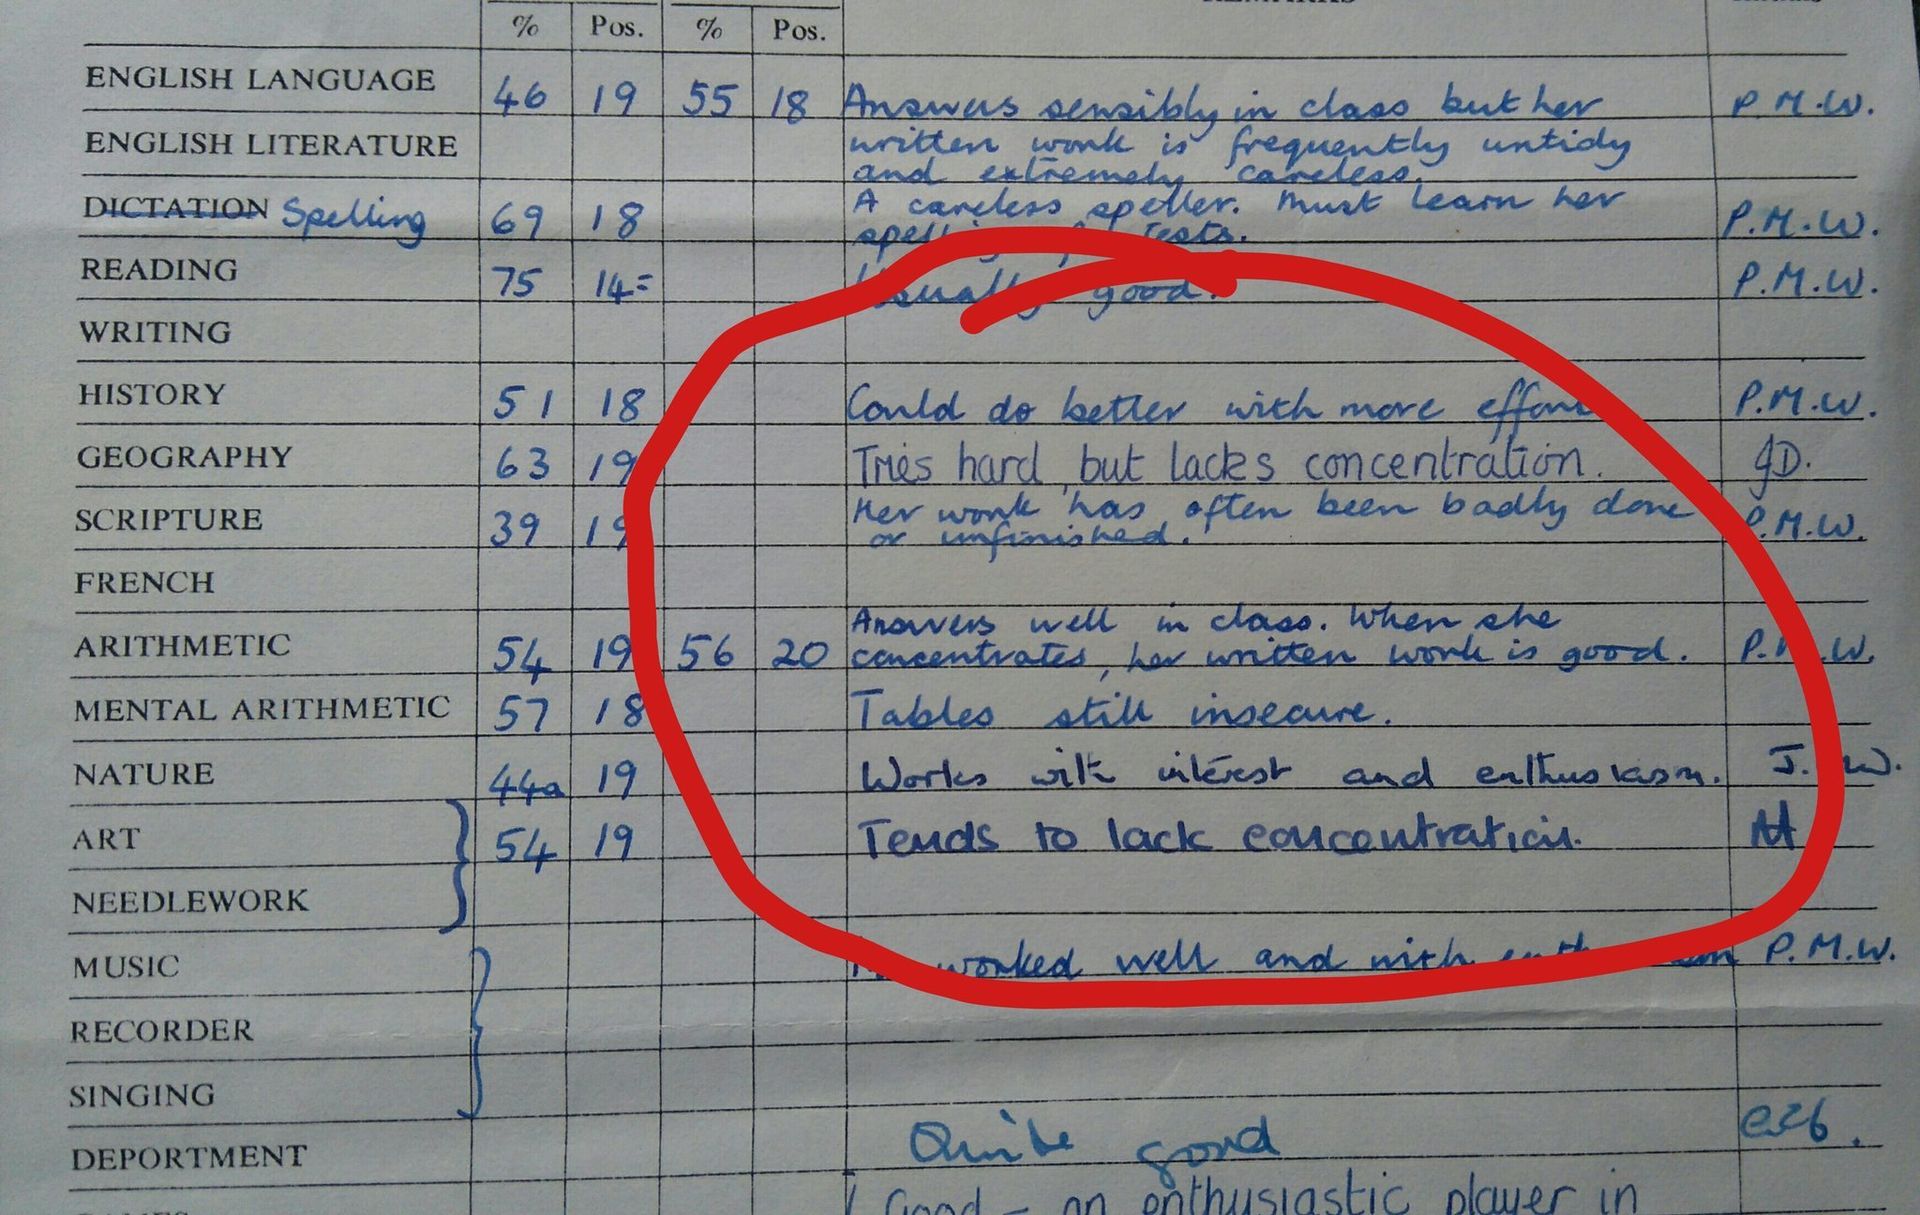 % Pos. % Pos.
ENGLISH LANGUAGE 46 19 55 18 Answers sensibly in class but her P.M.W.
ENGLISH LITERATURE written work is frequently untidy
and extremely careless.
DICTATION Spelling 69 18 A careless speller. Must learn her P.M.W.
tests.
READING 75 14= Usually good. P.M.W.
WRITING
HISTORY 51 18 Could do better with more effort P.M.W.
GEOGRAPHY 63 19 Tries hard, but lacks concentration. JD.
SCRIPTURE 39 19 Her work has often been badly done P.M.W.
or unfinished.
FRENCH
Answers well in class. When she
ARITHMETIC 54 19 56 20 concentrates, her written work is good. P.M.W.
MENTAL ARITHMETIC 57 18 Tables still insecure.
NATURE 44a 19 Works with interest and enthusiasm. J. W.
ART 54 19 Tends to lack concentration.
NEEDLEWORK
MUSIC worked well and with P.M.W.
RECORDER
SINGING
DEPORTMENT Quite good
Good - an enthusiastic player in